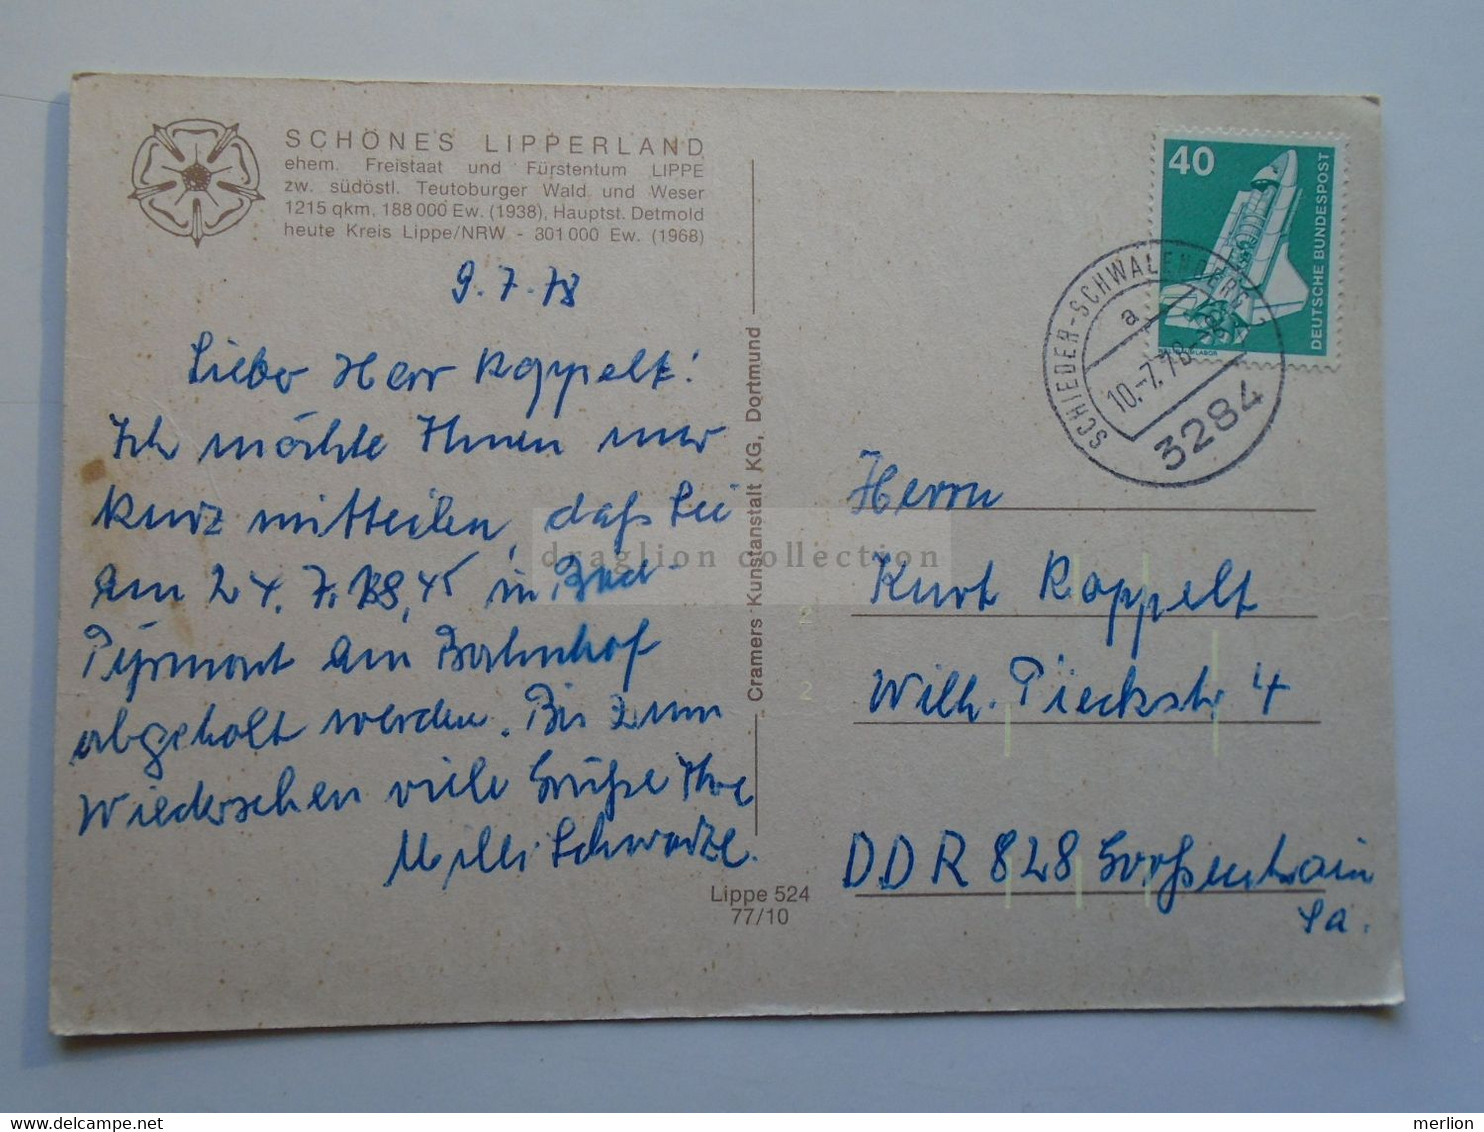 SCHÖNES LIPPERLAND
ehem. Freistaat und Fürstentum LIPPE
zw. südöstl. Teutoburger Wald und Weser
1215 qkm, 188 000 Ew. (1938), Hauptst. Detmold
heute Kreis Lippe/NRW - 301 000 Ew. (1968)
9.7.78
Lieber Herr Koppelt!
Ich möchte Ihnen nur
kurz mitteilen, daß Sie
am 24.7. 18,45 in Bad-
Pyrmont am Bahnhof
abgeholt werden. Bis zum
Wiedersehen viele Grüße Ihre
Milli Schwarze.
Cramers Kunstanstalt KG, Dortmund
Lippe 524
77/10
40
DEUTSCHE BUNDESPOST
SCHIEDER-SCHWALENBERG 2
a
10.-7.78
3284
Herrn
Kurt Koppelt
Wilh. Pieckstr 4
DDR 828 Großenhain
Sa.
2
2
draglion collection
merlion
delcampe.net